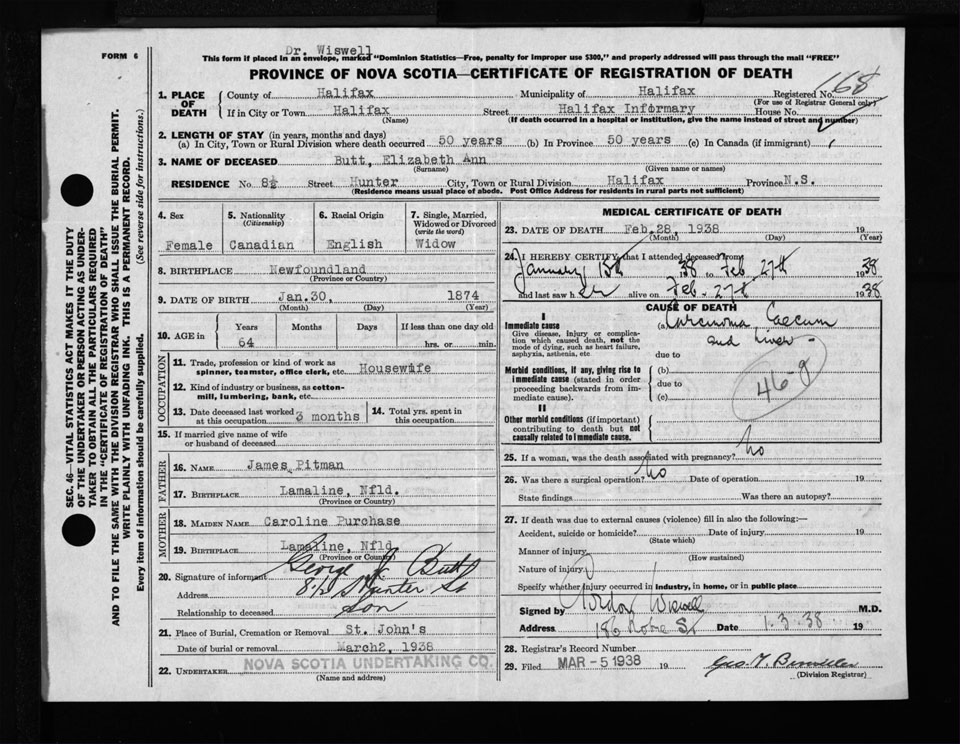 Dr. Wiswell
FORM 6
This form if placed in an envelope, marked "Dominion Statistics—Free, penalty for improper use $300," and properly addressed will pass through the mail "FREE"
PROVINCE OF NOVA SCOTIA—CERTIFICATE OF REGISTRATION OF DEATH
168
1. PLACE OF DEATH
County of Halifax Municipality of Halifax Registered No.
(For use of Registrar General only)
If in City or Town Halifax Street Halifax Infirmary House No.
(Name) (If death occurred in a hospital or institution, give the name instead of street and number)
2. LENGTH OF STAY (in years, months and days)
(a) In City, Town or Rural Division where death occurred 50 years (b) In Province 50 years (c) In Canada (if immigrant)
3. NAME OF DECEASED Butt, Elizabeth Ann
(Surname) (Given name or names)
RESIDENCE No. 8½ Street Hunter City, Town or Rural Division Halifax Province N.S.
(Residence means usual place of abode. Post Office Address for residents in rural parts not sufficient)
4. Sex
Female
5. Nationality
(Citizenship)
Canadian
6. Racial Origin
English
7. Single, Married, Widowed or Divorced
(write the word)
Widow
8. BIRTHPLACE Newfoundland
(Province or Country)
9. DATE OF BIRTH Jan.30, 1874
(Month) (Day) (Year)
10. AGE in
Years Months Days If less than one day old
64 hrs. or min.
OCCUPATION
11. Trade, profession or kind of work as spinner, teamster, office clerk, etc. Housewife
12. Kind of industry or business, as cotton-mill, lumbering, bank, etc.
13. Date deceased last worked at this occupation 3 months
14. Total yrs. spent in this occupation
15. If married give name of wife or husband of deceased
FATHER
16. NAME James Pitman
17. BIRTHPLACE Lamaline, Nfld.
(Province or Country)
MOTHER
18. MAIDEN NAME Caroline Purchase
19. BIRTHPLACE Lamaline, Nfld
(Province or Country)
20. Signature of informant George J Butt
Address 8½ Hunter St
Relationship to deceased Son
21. Place of Burial, Cremation or Removal St. John's
Date of burial or removal March2, 1938
22. UNDERTAKER NOVA SCOTIA UNDERTAKING CO.
(Name and address)
MEDICAL CERTIFICATE OF DEATH
23. DATE OF DEATH Feb.28, 1938 19
(Month) (Day) (Year)
24. I HEREBY CERTIFY that I attended deceased from
January 15th 1938 to Feb 27th 1938
and last saw her alive on Feb - 27th 1938
CAUSE OF DEATH
I
Immediate cause
Give disease, injury or complication which caused death, not the mode of dying, such as heart failure, asphyxia, asthenia, etc
(a) Carcinoma Caecum
and Liver -
due to
Morbid conditions, if any, giving rise to immediate cause (stated in order proceeding backwards from immediate cause).
(b)
due to
(c)
46-g
II
Other morbid conditions (if important) contributing to death but not causally related to immediate cause.
25. If a woman, was the death associated with pregnancy? No
26. Was there a surgical operation? No Date of operation 19
State findings Was there an autopsy?
27. If death was due to external causes (violence) fill in also the following:—
Accident, suicide or homicide? Date of injury 19
(State which)
Manner of injury
(How sustained)
Nature of injury
Specify whether injury occurred in industry, in home, or in public place
Signed by Wiswell M.D.
Address 186 Date 1.3.38 19
28. Registrar's Record Number
29. Filed MAR -5 1938
(Division Registrar)
SEC. 46—VITAL STATISTICS ACT MAKES IT THE DUTY OF THE UNDERTAKER OR PERSON ACTING AS UNDERTAKER TO OBTAIN ALL THE PARTICULARS REQUIRED IN THE "CERTIFICATE OF REGISTRATION OF DEATH"
AND TO FILE THE SAME WITH THE DIVISION REGISTRAR WHO SHALL ISSUE THE BURIAL PERMIT.
WRITE PLAINLY WITH UNFADING INK. THIS IS A PERMANENT RECORD.
Every item of information should be carefully supplied. (See reverse side for instructions.)